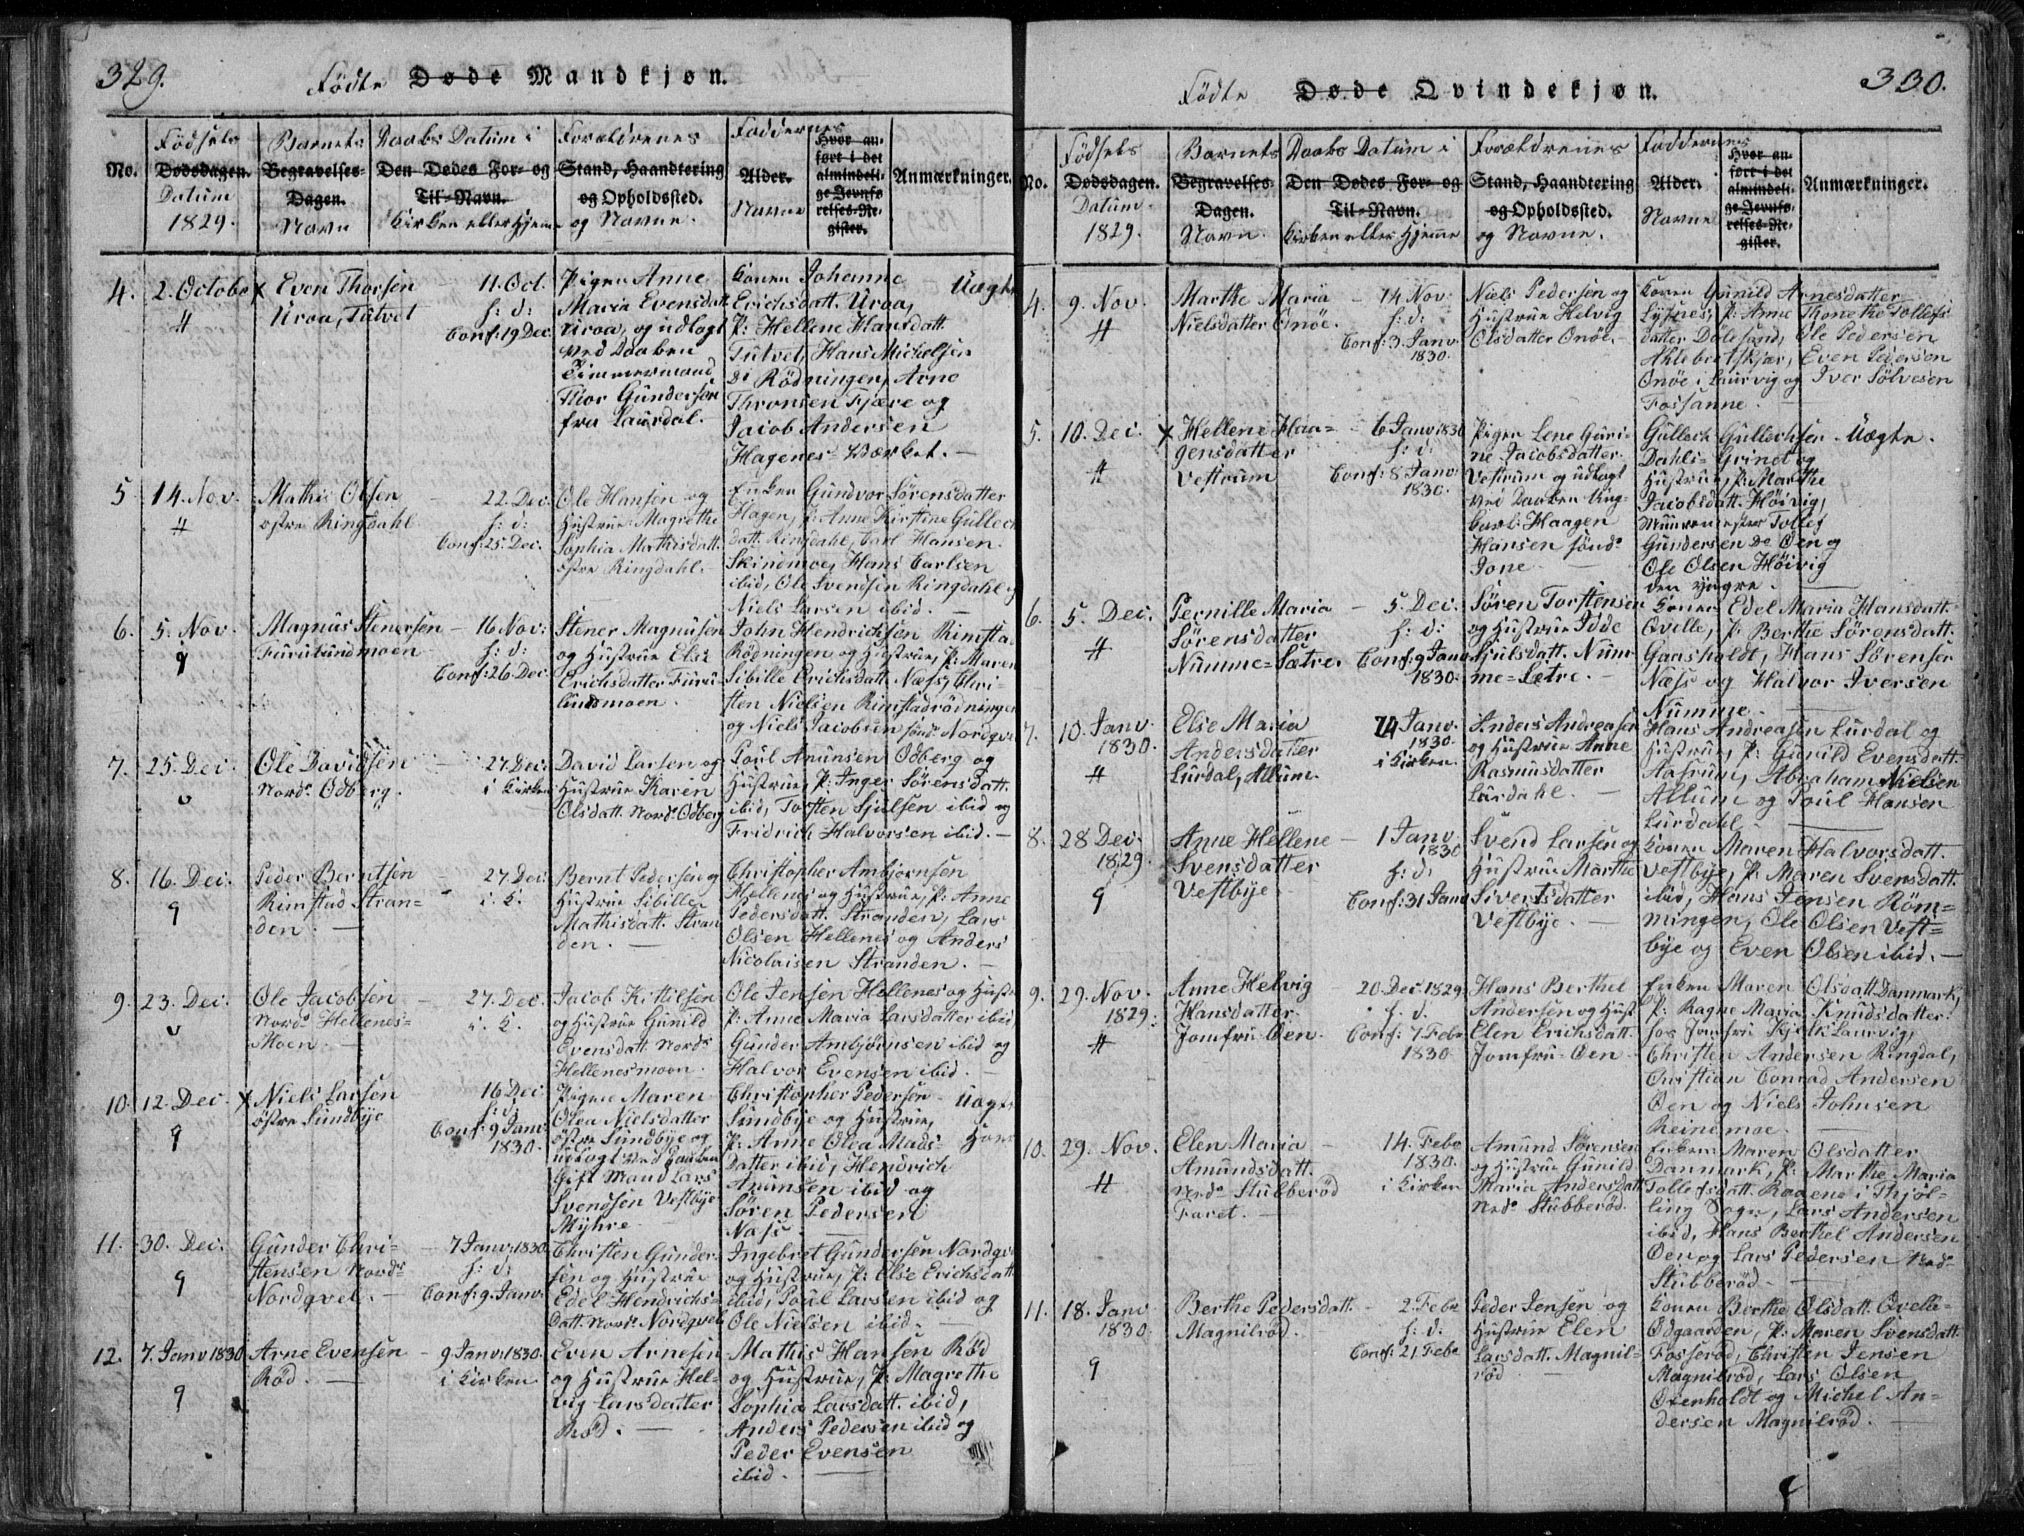 329.
Födte Døde Mandkjøn.
No.
Födsels Dødsdagen. Datum 1829.
Barnets Begravelses-Dagen. Navn
Daabs Datum i Den Dødes For- og Til-Navn. Kirken eller Hjemme
Forældrenes Stand, Haandtering og Opholdssted. og Navne.
Faddernes Alder. Navne
Hvor anført i det almindelige Jevnførelses-Register.
Anmærkninger.
4.
2. Octobe
#
x Even Thorsen
Uroa, Tutvet
11. Oct.
h: d:
Conf: 19 Dec.
Pigen Anne
Maria Evensdatt
Uroa, og udlagt
ved Daaben
Timmermand
Thor Gundersen
fra Laurdal.
Konen Johanne
Erichsdatt. Uroa,
P: Hellene Hansdatt.
Tutvet, Hans Michelsen
Rödningen, Arne
Thronsen Fjære og
Jacob Andersen
Hagenes-Værket.
Uægte
5
14. Nov.
#
Mathis Olsen
østre Ringdahl
22. Dec:
h: d:
Conf: 25. Dec.
Ole Hansen og
Hustrue Magrethe
Sophia Mathisdatt.
østre Ringdahl.
Enken Gundvor Sörensdatter
Hagen, P: Anne Kirstine Gullech
datt. Ringdahl, Carl Hansen
Skinmoe, Hans Carlsen
ibid, Ole Svendsen Ringdahl og
Niels Larsen ibid.
6.
5. Nov.
9
Magnus Stenersen
Furulundmoen
16 Nov:
h: d:
Conf: 26. Dec.
Stener Magnusen
og Hustrue Else
Erichsdatter Furu-
lundmoen.
John Hendrichsen Rimstad
Rödningen og Hustrue, P: Maren
Sibille Erichsdatt. Næss, Chri-
sten Nielsen Rimstadrödningen
og Niels Jacobsen sönd. Nordqve
7.
25. Dec.
Ole Davidsen
Nord. Odberg.
27 Dec.
i Kirken
David Larsen og
Hustrue Karen
Olsdatt. Nord. Odberg
Poul Amunsen Odberg og
Hustrue, P: Inger Sörensdatt.
ibid, Torsten Sjulsen ibid og
Fridrich Halvorsen ibid.
8.
16. Dec.
9
Peder Berntsen
Rimstad Stran-
den.
27 Dec:
i. K.
Bernt Pedersen og
Hustrue Sibille
Mathisdatt. Stran
den.
Christopher Ambjørnsen
Hellenes og Hustrue, P: Anne
Pedersdatt. Stranden, Lars
Olsen Hellenes og Anders
Nicolaisen Stranden.
9.
23. Dec.
Ole Jacobsen
Nord. Hellenes-
Moen.
27. Dec.
i. K.
Jacob Kittilsen
og Hustrue Gunild
Evensdatt. Nord.
Hellenesmoen.
Ole Jensen Hellenes og Hustr
P: Anne Maria Larsdatter ibid
Gunder Ambjørnsen ibid og
Halvor Evensen ibid.
10.
12. Dec.
9
x Niels Larsen
østre Sundbye
16 Dec.
h: d:
Conf: 9 Janv.
1830.
Pigen Maren
Olea Nielsdatter
østre Sundbye og
udlagt ved Daaben
Gift Mand Lars
Svendsen Vestbye
Myhre
Christopher Pedersen
Sundbye og Hustrue,
P: Anne Olea Mads-
datter ibid, Hendrich
Amunsen ibid og
Sören Pedersen
Næss.
Uægte
11.
30. Dec.
9
Gunder Chri-
stensen Nord.
Nordqvel.
7 Janv. 1830
h: d:
Conf: 9. Janv.
Christen Gunder-
sen og Hustrue
Edel Hendrichs-
datt. Nord. Nordqvel
Ingebret Gundersen Nordqve
og Hustrue, P: Else Erichsdatt
ibid, Poul Larsen ibid og
Ole Nielsen ibid.
12.
7. Janv 1830
9
Arne Evensen
Röd.
9 Janv. 1830.
i Kirken
Even Arnesen
og Hustrue Hel-
vig Larsdatter
Röd.
Mathis Hansen Röd
og Hustrue, P: Magrethe
Sophia Larsdatt. ibid,
Anders Pedersen ibid og
Peder Evensen
ibid.
330.
Födte Døde Qvindekjøn.
No.
Födsels Dødsdagen. Datum. 1829.
Barnets Begravelses-Dagen. Navn.
Daabs Datum i Den Dødes For- og Til-Navn. Kirken eller Hjemme
Forældrenes Stand, Haandtering og Opholdssted. og Navne.
Faddernes Alder. Navne
Hvor anført i det almindelige Jevnførelses-Register.
Anmærkninger.
4.
9. Nov.
#
Marthe Maria
Nielsdatter Onöe.
14 Nov.
h: d:
Conf: 3. Janv.
1830.
Niels Pedersen og
Hustrue Helvig
Olsdatter Onöe.
Konen Gunild Arnesdatter
Lysnes, P: Anne Thonethe Tollefs
datter Dolesand, Ole Pedersen
Even Pedersen
Onöe i Laurvig og Iver Sölvesen
Fossanne.
5.
10. Dec.
#
x Hellene Haa-
gensdatter
Vestrum
6 Janv 1830
h: d:
Conf: 8. Janv.
1830.
Pigen Lene Guri-
ne Jacobsdatter
Vestrum og udlagt
ved Daaben Ung-
karl Haagen
Hansen sönd.
Jone.
Gullech Gullechsen
Dahls-Grinet og
Hustrue, P: Marthe
Jacobsdatt. Höivig,
Muurmester Tollef
Gundersen Oen og
Ole Olsen Höivig
den yngre.
Uægte.
6.
5. Dec.
#
Pernille Maria
Sörensdatter
Numme-Sætre.
5. Dec.
h: d:
Conf: 9 Janv
1830.
Sören Torstensen
og Hustrue Idde
Sjulsdatt. Num-
me-Sætre.
Konen Edel Maria Hansdatt.
Qvelle, P: Berthe Sörensdatt.
Gaasholdt, Hans Sörensen
Næss og Halvor Iversen
Numme.
7.
10. Janv.
1830.
#
Else Maria
Andersdatter
Lurdal, Allum.
24 Janv.
1830.
i Kirken
Anders Andreasen
og Hustrue Anne
Rasmusdatter
Lurdahl.
Hans Andreasen Lurdal og
Hustrue, P: Gunild Evensdatt.
Aasrum, Abraham Nielsen
Allum og Poul Hansen
Lurdahl.
8.
28 Dec.
1829.
9
Anne Hellene
Svensdatter
Vestbye
1 Janv.
1830
h: d:
Conf: 31 Janv
Svend Larsen og
Hustrue Marthe
Sivertsdatter
Vestbye.
Konen Maren Halvorsdatt.
Vestbye, P: Maren Svensdatt.
ibid, Hans Jensen Röm-
mingen, Ole Olsen Vest-
bye og Even Olsen ibid.
9.
29. Nov.
1829.
#
Anne Helvig
Hansdatter
Jomfru-Oen.
20. Dec. 1829.
h. d.
Conf: 7 Febr
1830.
Hans Berthel
Andersen og Hust
Elen Erichsdatt.
Jomfru-Oen
Enken Maren Olsdatt. Danmark,
P: Ragne Maria Knudsdatter
hos Jomfru Kjelk Laurvig,
Christen Andersen Ringdal,
Christian Conrad Andersen
Oen og Niels Johnsen
Reinsmoe.
10.
29. Nov.
#
Elen Maria
Amundsdatt.
Ned. Stubberöd
Faret.
14. Febr
1830.
i Kirken
Amund Sörensen
og Hustrue Gunild
Maria Andersdatt
Ned. Stubberöd.
Enken Maren Olsdatter
Danmark, P: Marthe Maria
Tollefsdatt. Raaene i Thjöl-
ling Sogn, Lars Andersen
ibid, Hans Berthel Andersen
Oen og Lars Pedersen Ned.
Stubberöd.
11.
18. Janv
1830.
9
Berthe Pedersdatt.
Magnilröd.
2. Febr
h: d:
Conf: 21. Febr
Peder Jensen og
Hustrue Elen
Larsdatt. Magnil-
röd
Konen Berthe Olsdatt. Qvelle-
Odgaarden, P: Maren Svensdatt.
Fosseröd, Christen Jensen
Magnilröd, Lars Olsen
Oxenholdt og Michel An-
dersen Magnilröd.